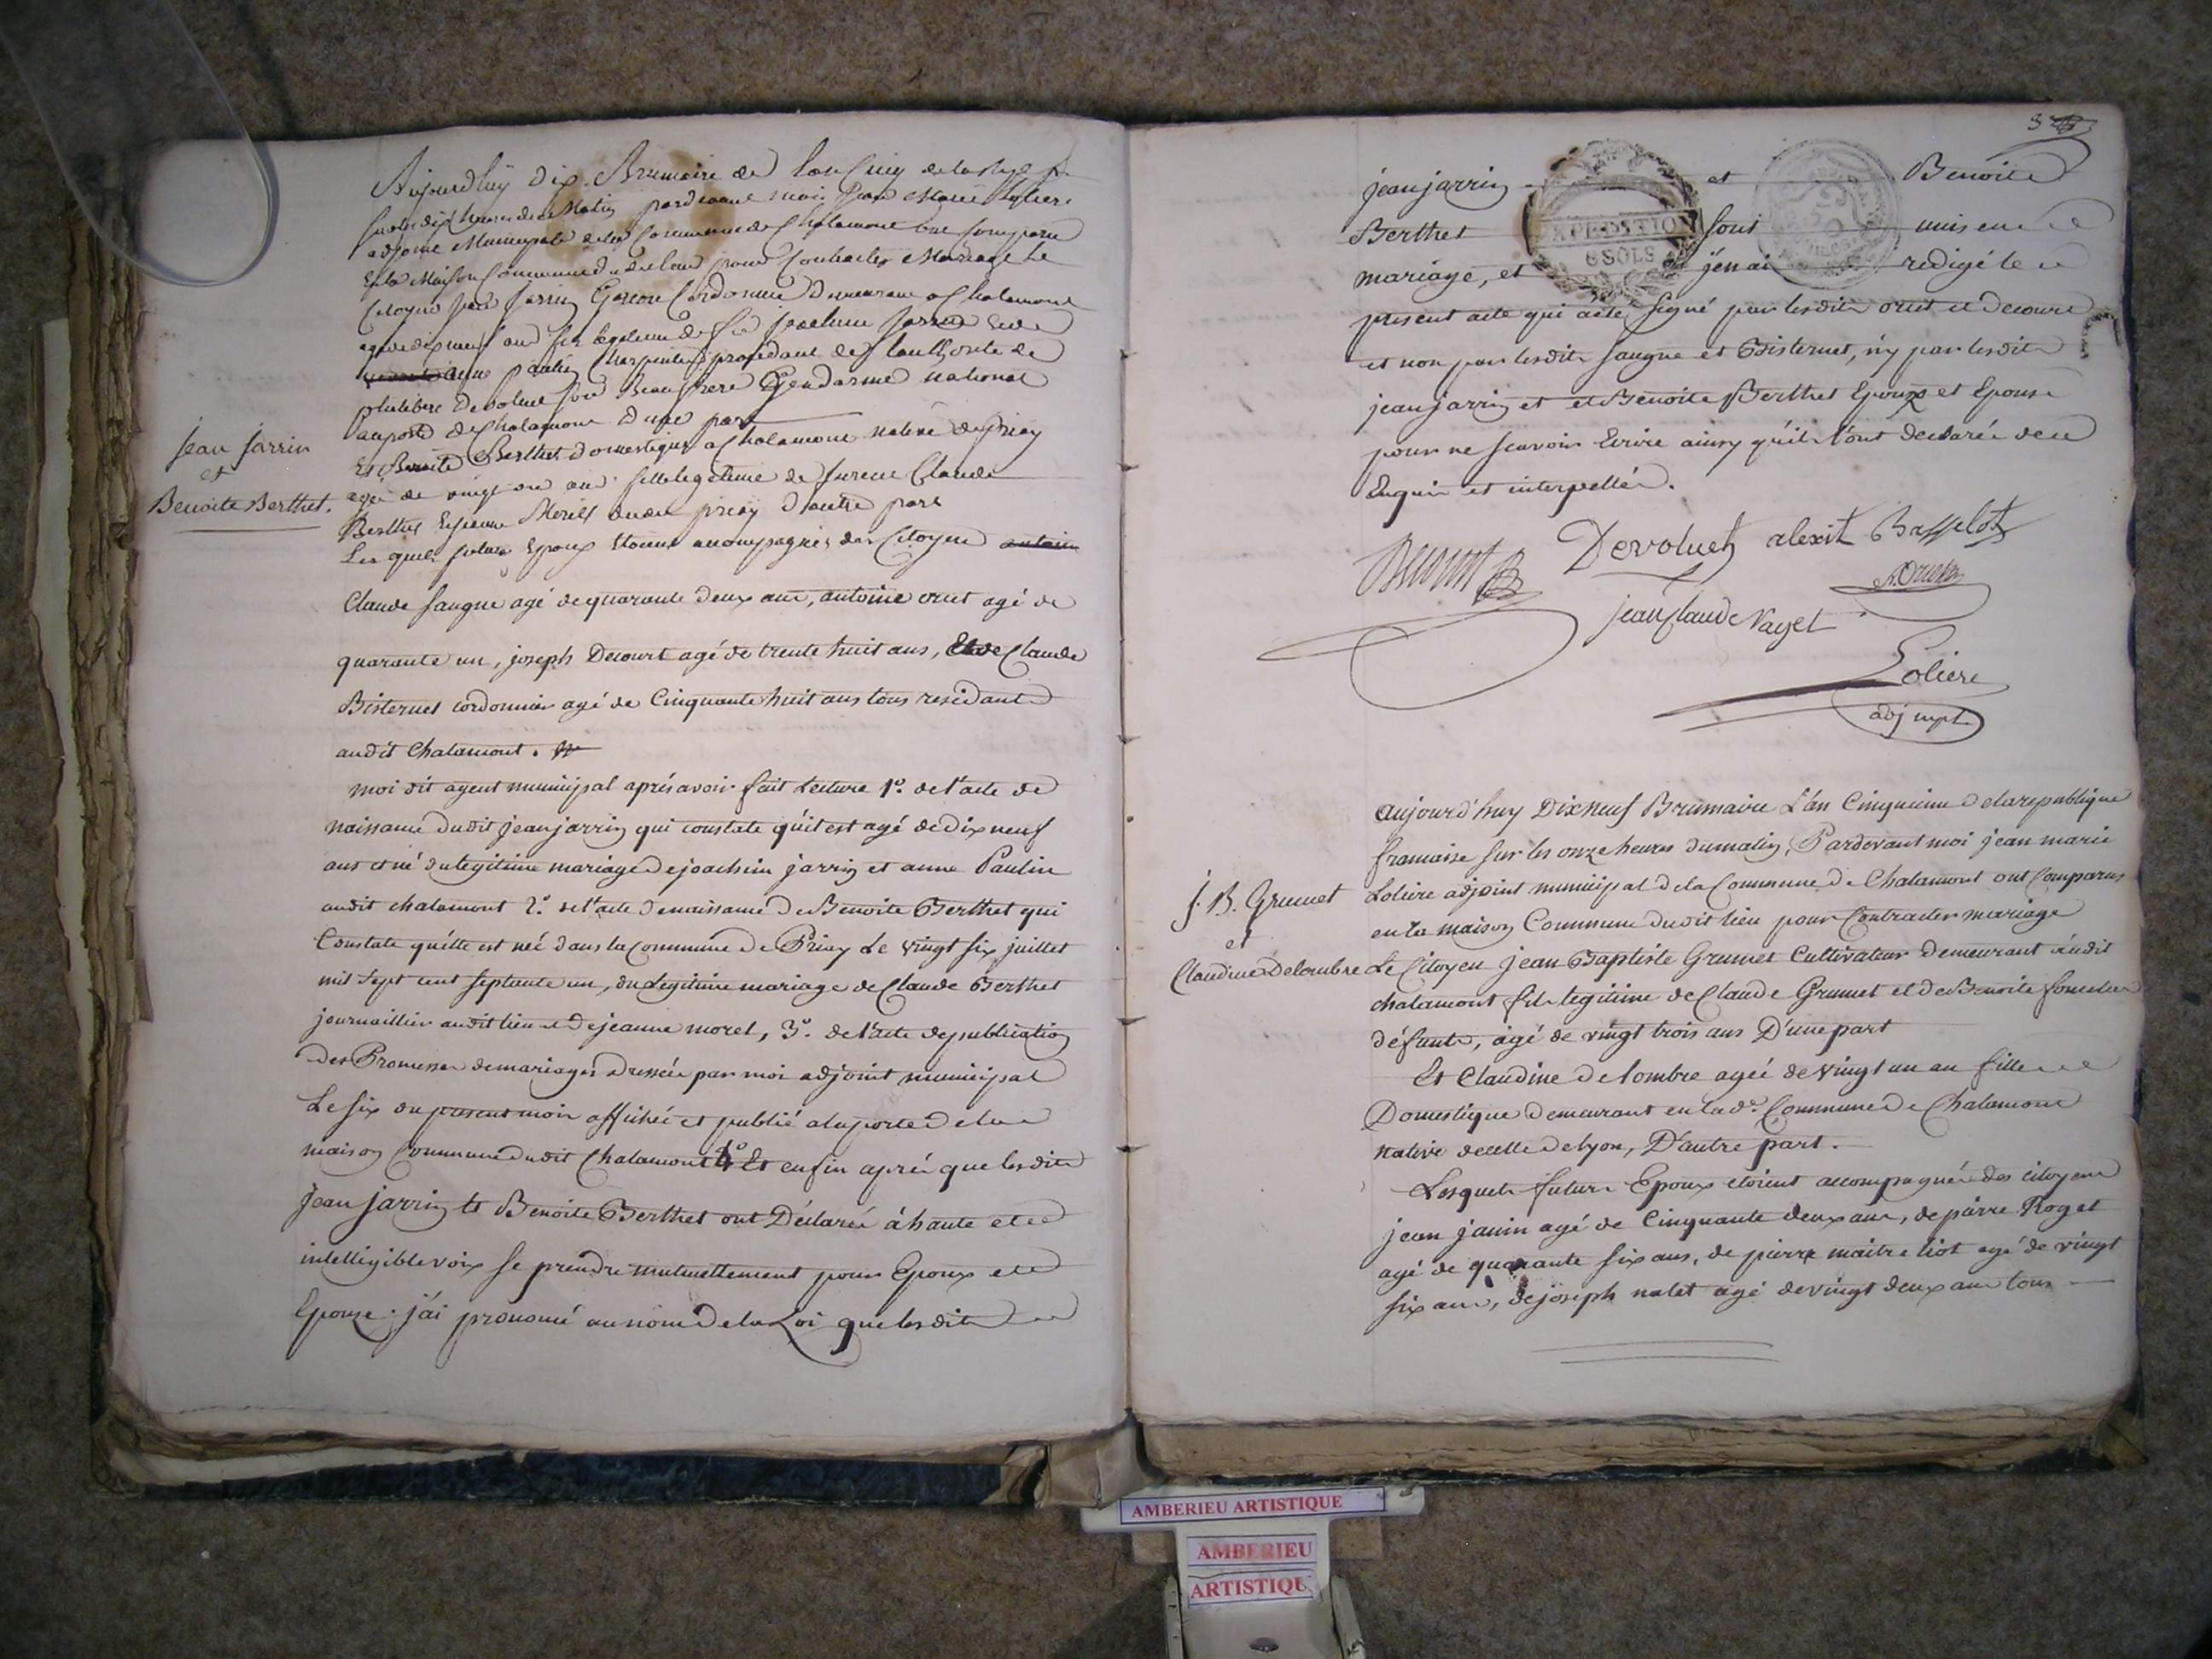 Aujourdhuy dix Brumaire de lan Cinq de la Rep f
sur les dix heures de Matin pardevant moi Jean Marie Loliere
adjoint Municipale de la Commune de Chalamont ont Comparu
En la Maison Commune du dit lieu pour Contracter Mariage Le
Citoyen Jean Jarrin Garcon Cordonnier Demeurant a Chalamont
agé de dix neuf ans fils legitime de Joachim Jarrin et de
anne paulin Charpentier procedant de Lauthorité de
philibert Devoluet son Beau frere Gendarme national
au poste de Chalamont D'une part
Et Benoite Berthet domestique a Chalamont native de priay
agée de vingt ans fille legitime de Claude
Berthet Et jeanne Morel dudit priay D'autre part
Jean Jarrin
et
Benoite Berthet.
Lesquels futurs Epoux Etoient accompagnés des Citoyens
Claude saugne agé de quarante deux ans, antoine oriet agé de
quarante un, joseph Decourt agé de trente huit ans, Claude
Bisternet cordonnier agé de Cinquante huit ans tous residants
audit Chalamont.
moi dit agent municipal après avoir fait Lecture 1°. de l'acte de
naissance dudit jean jarrin qui constate qu'il est agé de dix neuf
ans et né du legitime mariage de joachim jarrin et anne Paulin
audit chalamont 2°. de l'acte de naissance de Benoite Berthet qui
Constate qu'elle est née dans la Commune de Priay Le vingt six juillet
mil sept cent septante un, du Legitime mariage de Claude Berthet
journaillier audit lieu et de jeanne morel, 3°. de l'acte de publication
des Promesses de mariages dressée par moi adjoint municipal
Le six du present mois affiché et publié a la porte de la
maison Commune dudit Chalamont 4° Et enfin après que lesdits
Jean jarrin et Benoite Berthet ont Déclarés à haute et
intelligible voix se prendre mutuellement pour Epoux et
Epouse. j'ai prononcé au nom de la Loi que lesdits
3
jean jarrin et Benoite
Berthet sont unis en
mariage, et j'en ai redigé le
EXPEDITION
6 SOLS
present acte qui a été signé par lesdits oriet et decourt
et non par lesdits saugne et Bisternet, n'y par lesdits
jean jarrin et et Benoite Berthet Epoux et Epouse
pour ne scavoir Ecrire ainsy qu'ils l'ont declarés de ce
Enquis et interpellés.
Decourt Devoluet alexit Basselot
A. Oriet
jean Claude Vayet
Loliere
adj mpl
aujourd'huy Dix neuf Brumaire L'an Cinquieme de la republique
francaise sur les onze heures du matin, Pardevant moi jean marie
Loliere adjoint municipal de la Commune de Chalamont ont Comparus
en la maison Commune du dit lieu pour Contracter mariage
J. B. Grumet
et
Claudine Delombre
Le Citoyen jean Baptiste Grumet Cultivateur demeurant audit
chalamont fils legitime de Claude Grumet et de Benoite
défunts, agé de vingt trois ans D'une part
Et Claudine delombre agée de vingt un an fille
Domestique demeurant en la de. Commune de Chalamont
native de celle de lyon, D'autre part.
Lesquels futurs Epoux etoient accompagnés des citoyens
jean janin agé de Cinquante deux ans, de pierre Roget
agé de quarante six ans, de pierre maitre liot agé de vingt
six ans, de joseph nalet agé de vingt deux ans tous
AMBERIEU ARTISTIQUE
AMBERIEU
ARTISTIQU